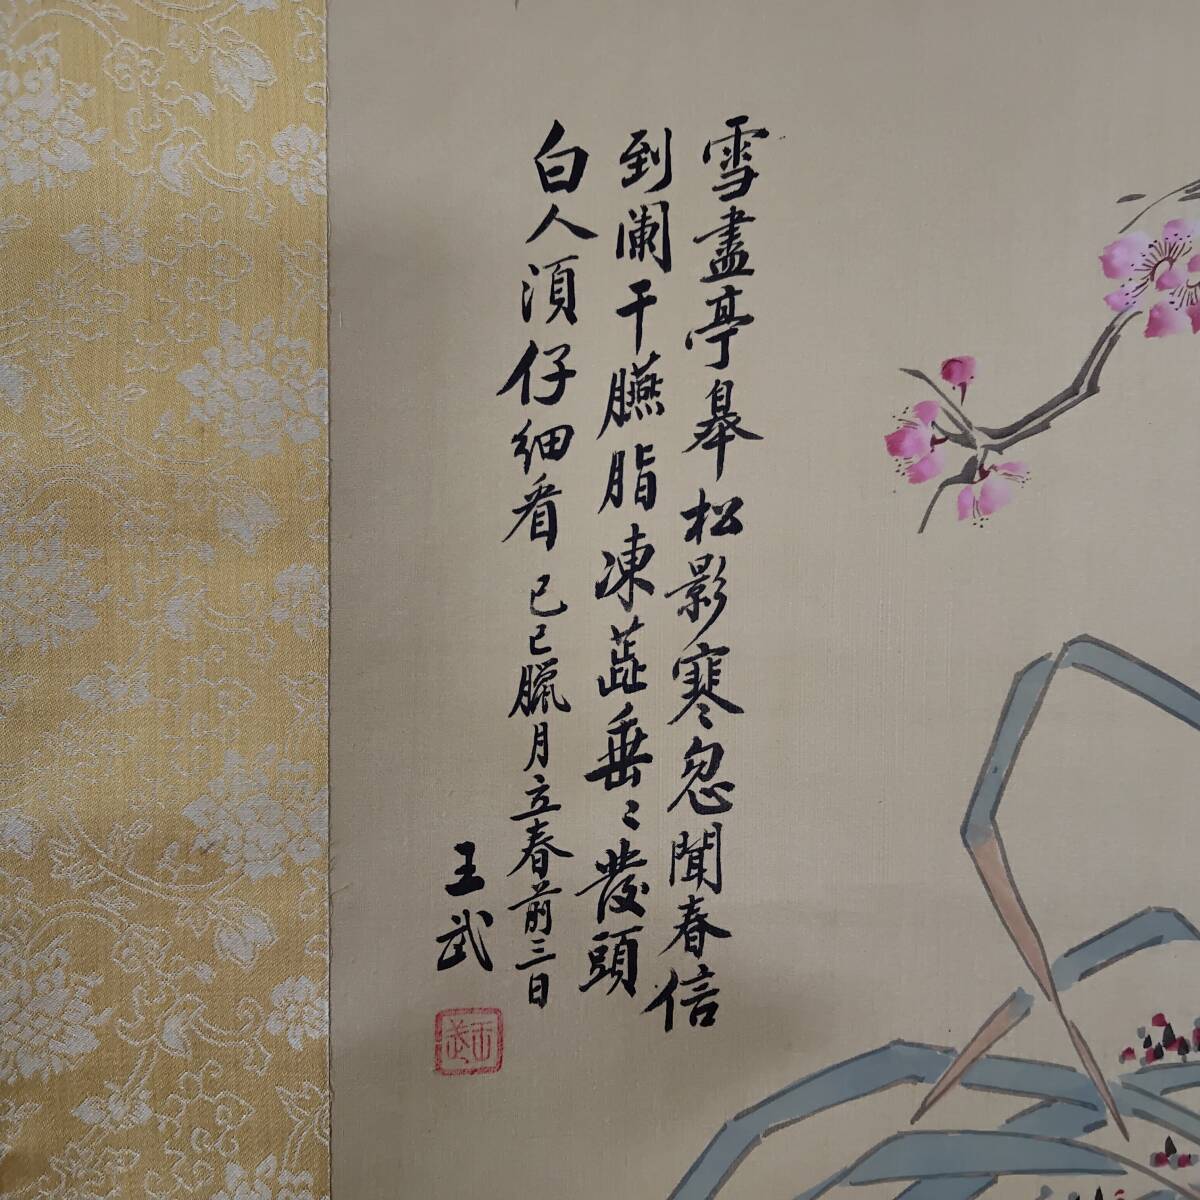 雪盡亭皋松影寒忽聞春信
到闌干臙脂凍蕋垂〻發頭
白人須仔細看 己巳臘月立春前三日
王武
王武